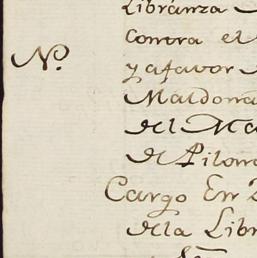 Libranza
Contra el
N.º
y afavor
Maldona
del Ma
de Pilon
Cargo En
dela Libr